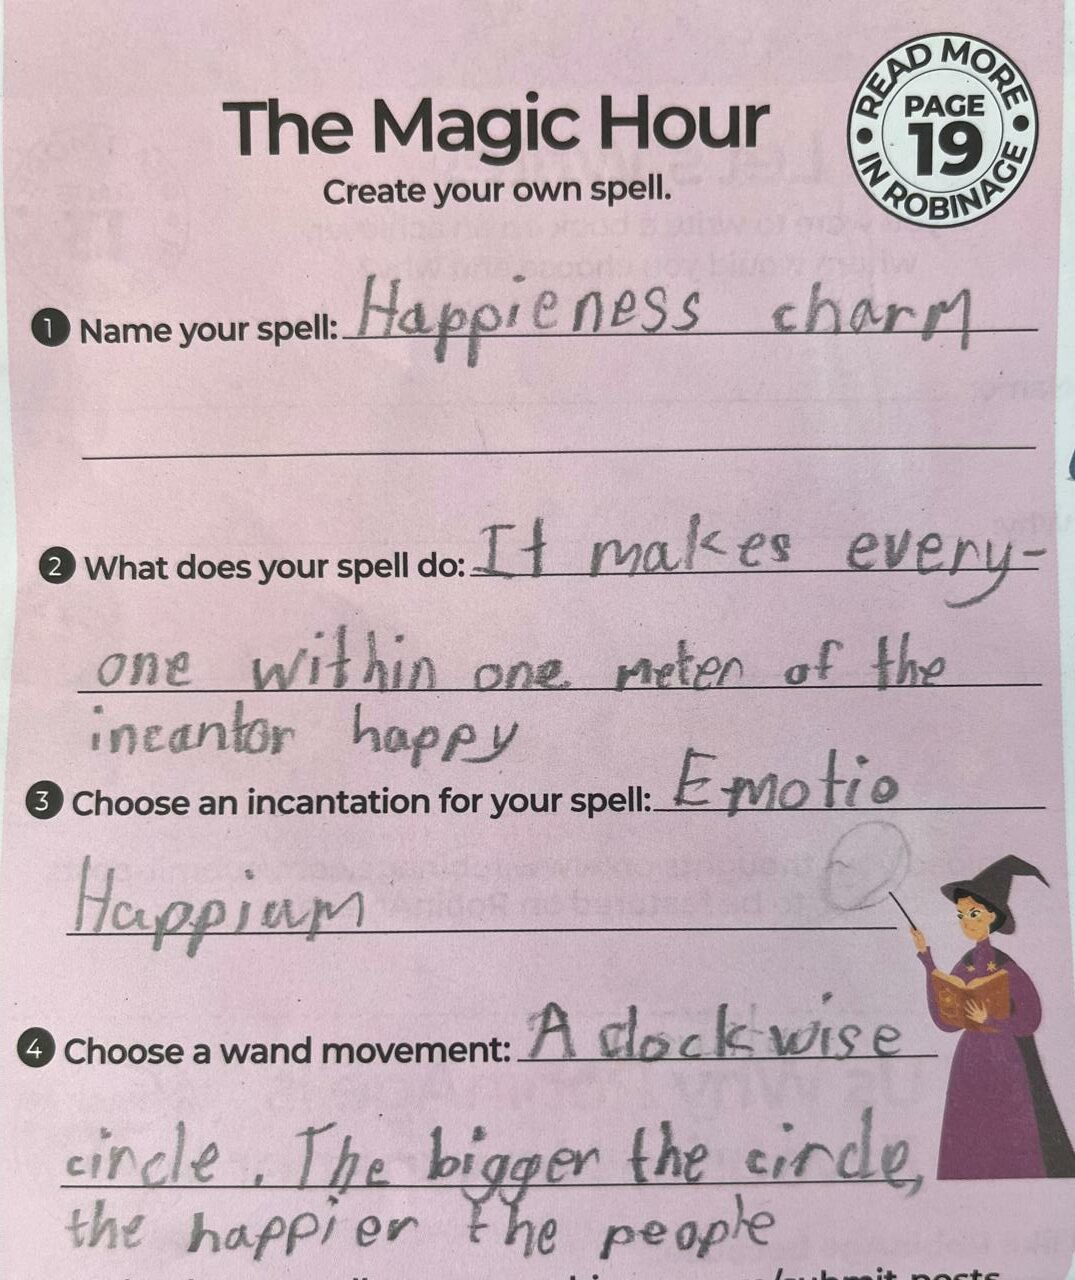 The Magic Hour
READ MORE
PAGE
19
IN ROBINAGE
Create your own spell.
1 Name your spell: Happieness charm
2 What does your spell do: It makes every-
one within one meter of the
incantor happy
3 Choose an incantation for your spell: Emotio
Happium
4 Choose a wand movement: A clockwise
circle. The bigger the circle,
the happier the people
/submit-posts